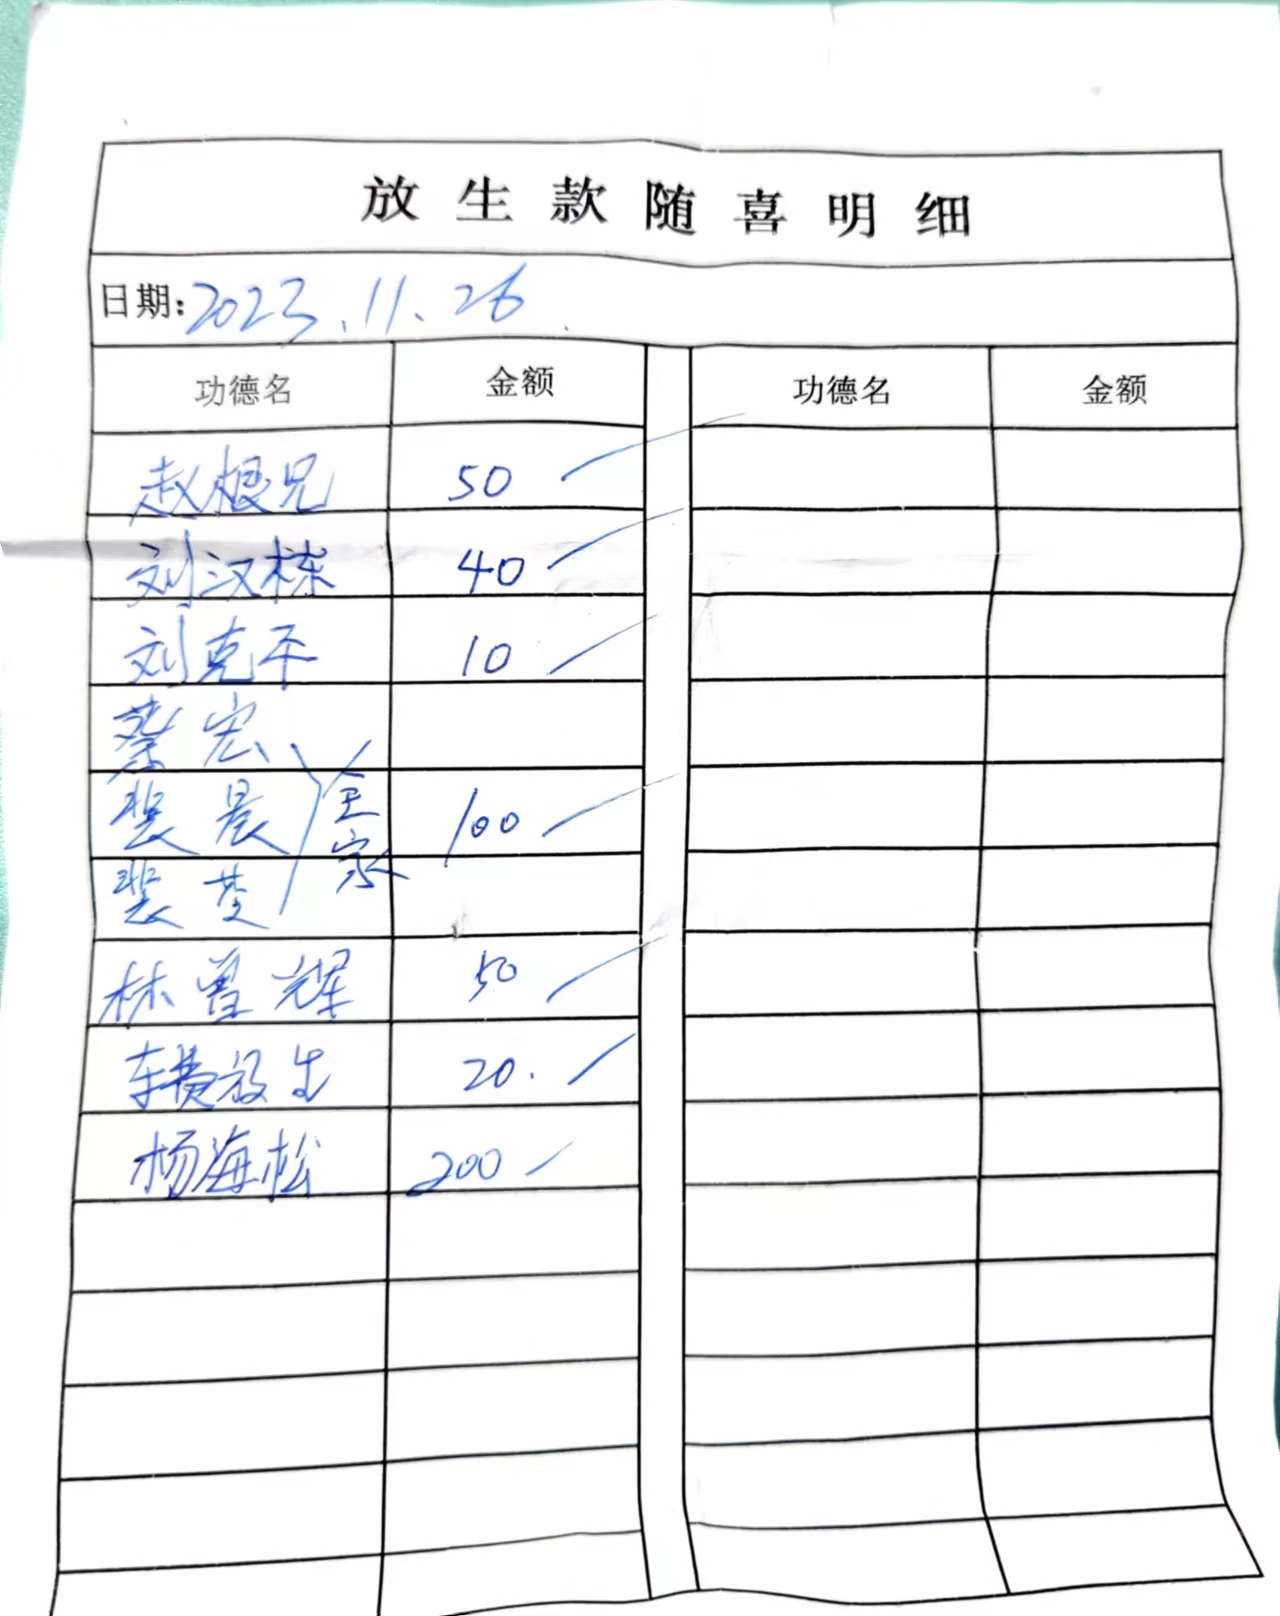 放生款随喜明细
日期:2023.11.26
功德名 金额 功德名 金额
赵根兄 50
刘汉栋 40
刘克平 10
蔡宏
裴晨 全家 100
裴
林曾辉 50
车费放生 20.
杨海松 200